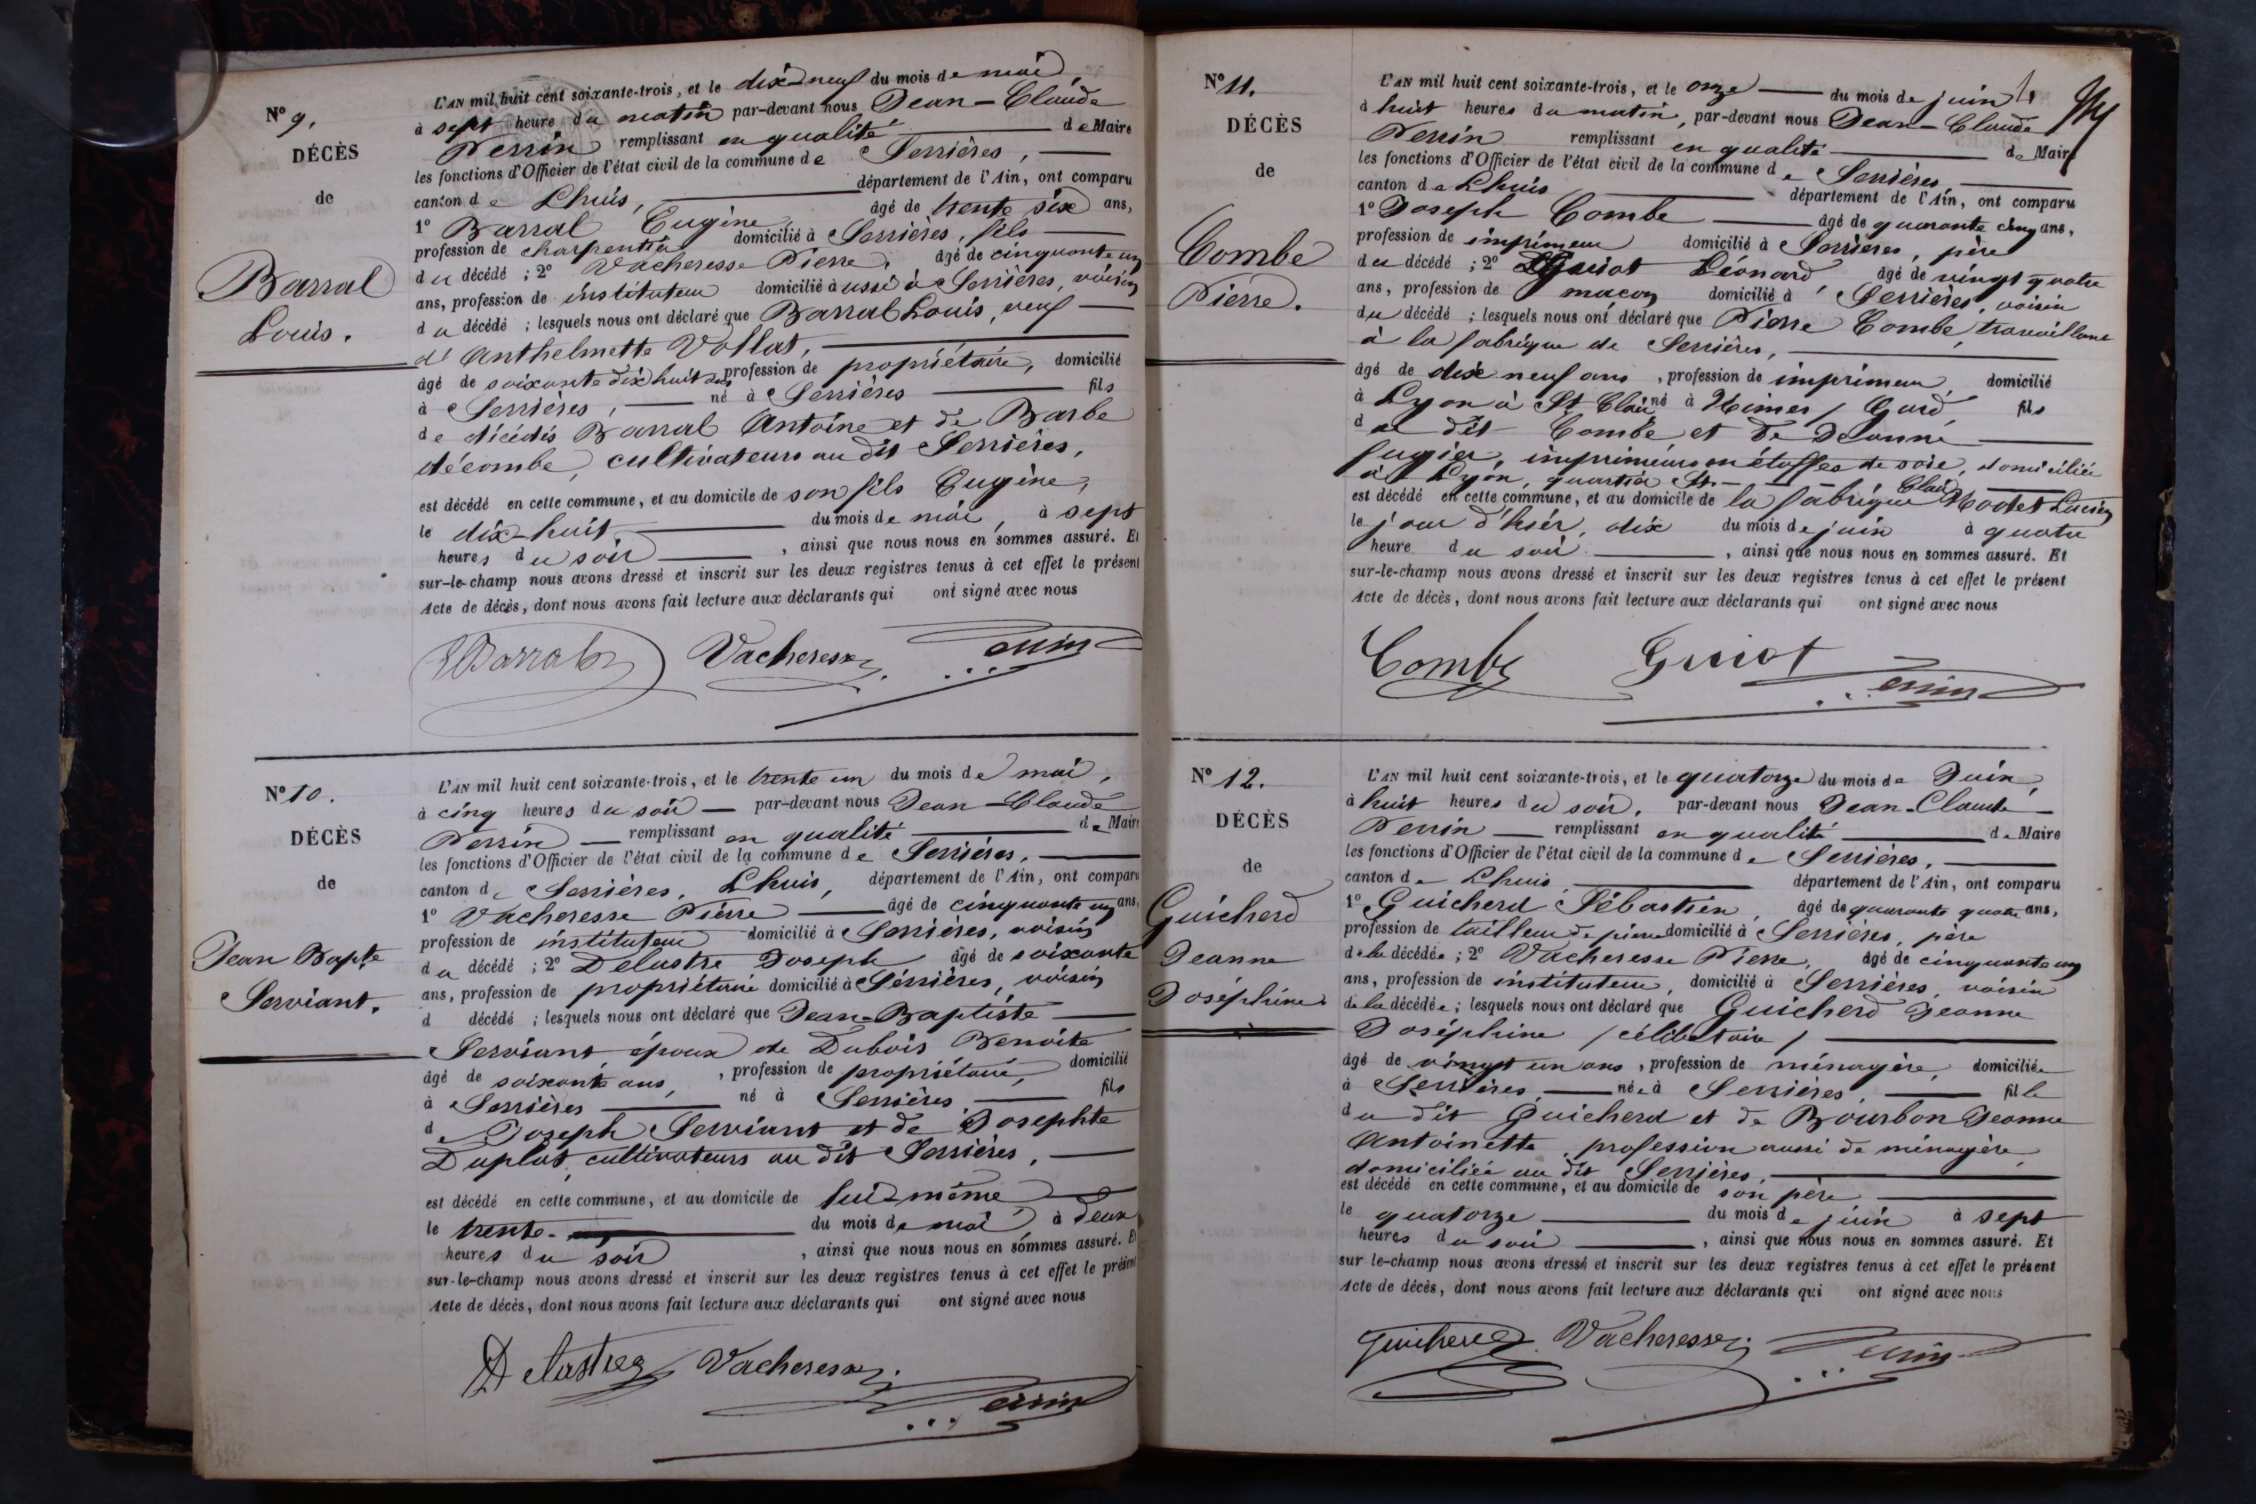 N° 9.
DÉCÈS
de
Barral
Louis.
L'AN mil huit cent soixante-trois, et le dix-neuf du mois de mai,
à sept heure du matin par-devant nous Jean-Claude
Perrin remplissant en qualité de Maire
les fonctions d'Officier de l'état civil de la commune de Serrières,
canton de Lhuis, département de l'Ain, ont comparu
1° Barral Eugène âgé de trente six ans,
profession de charpentier domicilié à Serrières, fils
du décédé ; 2° Vacheresse Pierre, âgé de cinquante un
ans, profession de instituteur domicilié à ussi à Serrières, voisin
du décédé ; lesquels nous ont déclaré que Barral Louis, veuf
d'Anthelmette Vollat,
âgé de soixante dix huit ans profession de propriétaire, domicilié
à Serrières, né à Serrières fils
de décédés Barral Antoine et de Barbe
décombe, cultivateurs au dit Serrières,
est décédé en cette commune, et au domicile de son fils Eugène,
le dix-huit du mois de mai, à sept
heures du soir, ainsi que nous nous en sommes assuré. Et
sur-le-champ nous avons dressé et inscrit sur les deux registres tenus à cet effet le présent
Acte de décès, dont nous avons fait lecture aux déclarants qui ont signé avec nous
Barral Vacheresse Perrin
N° 10.
DÉCÈS
de
Jean Bapte
Serviant.
L'AN mil huit cent soixante-trois, et le trente un du mois de mai,
à cinq heures du soir par-devant nous Jean-Claude
Perrin remplissant en qualité de Maire
les fonctions d'Officier de l'état civil de la commune de Serrières,
canton de Serrières, Lhuis, département de l'Ain, ont comparu
1° Vacheresse Pierre âgé de cinquante un ans,
profession de instituteur domicilié à Serrières, voisin
du décédé ; 2° Delastre Joseph âgé de soixante
ans, profession de propriétaire domicilié à Serrières, voisin
d décédé ; lesquels nous ont déclaré que Jean-Baptiste
Serviant époux de Dubois Benoite
âgé de soixante ans, profession de propriétaire, domicilié
à Serrières né à Serrières, fils
de Joseph Serviant et de Josephte
Duplat, cultivateurs au dit Serrières,
est décédé en cette commune, et au domicile de lui-même
le trente du mois de mai à deux
heures du soir, ainsi que nous nous en sommes assuré. Et
sur-le-champ nous avons dressé et inscrit sur les deux registres tenus à cet effet le présent
Acte de décès, dont nous avons fait lecture aux déclarants qui ont signé avec nous
Delastre Vacheresse Perrin
N° 11.
DÉCÈS
de
Combe
Pierre.
L'AN mil huit cent soixante-trois, et le onze du mois de juin
à huit heures du matin, par-devant nous Jean-Claude
Perrin remplissant en qualité de Maire
les fonctions d'Officier de l'état civil de la commune de Serrières
canton de Lhuis département de l'Ain, ont comparu
1° Joseph Combe âgé de quarante cinq ans,
profession de imprimeur domicilié à Serrières, père
du décédé ; 2° Guiot Léonard, âgé de vingt quatre
ans, profession de maçon domicilié à Serrières, voisin
du décédé ; lesquels nous ont déclaré que Pierre Combe, travaillant
à la fabrique de Serrières,
âgé de dix neuf ans, profession de imprimeur, domicilié
à Lyon à St Clair né à Nimes / Gard fils
du dit Combe et de Jeanne
fugier, imprimeurs en étoffes de soie, domiciliés
à Lyon, quartier St-Clair
est décédé en cette commune, et au domicile de la fabrique Lucien
le jour d'hier, dix du mois de juin à quatre
heure du soir, ainsi que nous nous en sommes assuré. Et
sur-le-champ nous avons dressé et inscrit sur les deux registres tenus à cet effet le présent
Acte de décès, dont nous avons fait lecture aux déclarants qui ont signé avec nous
Combe Guiot Perrin
N° 12.
DÉCÈS
de
Guicherd
Jeanne
Joséphine
L'AN mil huit cent soixante-trois, et le quatorze du mois de Juin,
à huit heures du soir, par-devant nous Jean-Claude
Perrin remplissant en qualité de Maire
les fonctions d'Officier de l'état civil de la commune de Serrières,
canton de Lhuis département de l'Ain, ont comparu
1° Guicherd Sébastien, âgé de quarante quatre ans,
profession de tailleur de pierre domicilié à Serrières, père
de la décédée ; 2° Vacheresse Pierre, âgé de cinquante un
ans, profession de instituteur, domicilié à Serrières, voisin
de la décédée ; lesquels nous ont déclaré que Guicherd Jeanne
Joséphine / célibataire /
âgé de vingt un ans, profession de ménagère, domiciliée
à Serrières, née à Serrières, fille
du dit Guicherd et de Bourbon Jeanne
Antoinette, profession aussi de ménagère
domiciliée au dit Serrières,
est décédé en cette commune, et au domicile de son père
le quatorze du mois de juin à sept
heures du soir, ainsi que nous nous en sommes assuré. Et
sur le-champ nous avons dressé et inscrit sur les deux registres tenus à cet effet le présent
Acte de décès, dont nous avons fait lecture aux déclarants qui ont signé avec nous
Guicherd Vacheresse Perrin